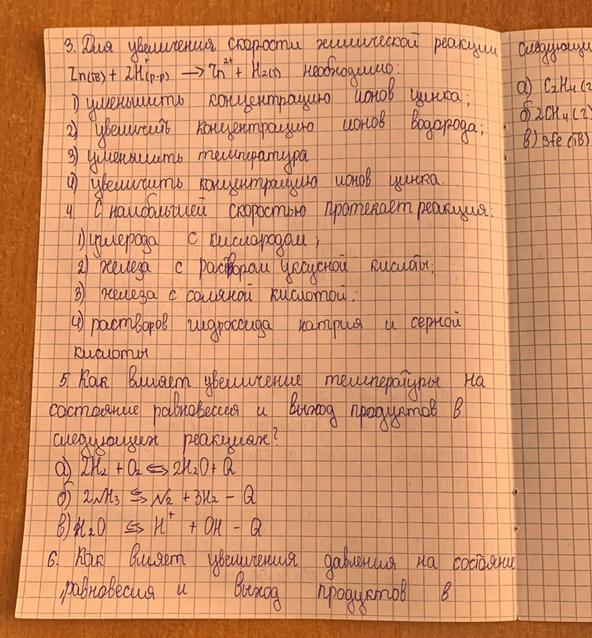 3. Для увеличения скорости химической реакции
Zn(тв) + 2H⁺(р-р) → Zn²⁺ + H₂(г) необходимо:
1) уменьшить концентрацию ионов цинка;
2) увеличить концентрацию ионов водорода;
3) уменьшить температура
4) увеличить концентрацию ионов цинка.
4. С наибольшей скоростью протекает реакция:
1) углерода с кислородом;
2) железа с раствором уксусной кислоты;
3) железа с соляной кислотой;
4) растворов гидроссида натрия и серной
кислоты
5. Как влияет увеличение температуры на
состояние равновесия и выход продуктов в
следующих реакциях?
а) 2H₂ + O₂ ⇆ 2H₂O + Q
б) 2NH₃ ⇆ N₂ + 3H₂ - Q
в) H₂O ⇆ H⁺ + OH - Q
6. Как влияет увеличения давления на состояни
равновесия и выход продуктов в
следующи
а) C₂H₄ (г
б) 2CH₄ (г)
в) 3Fe (тв)